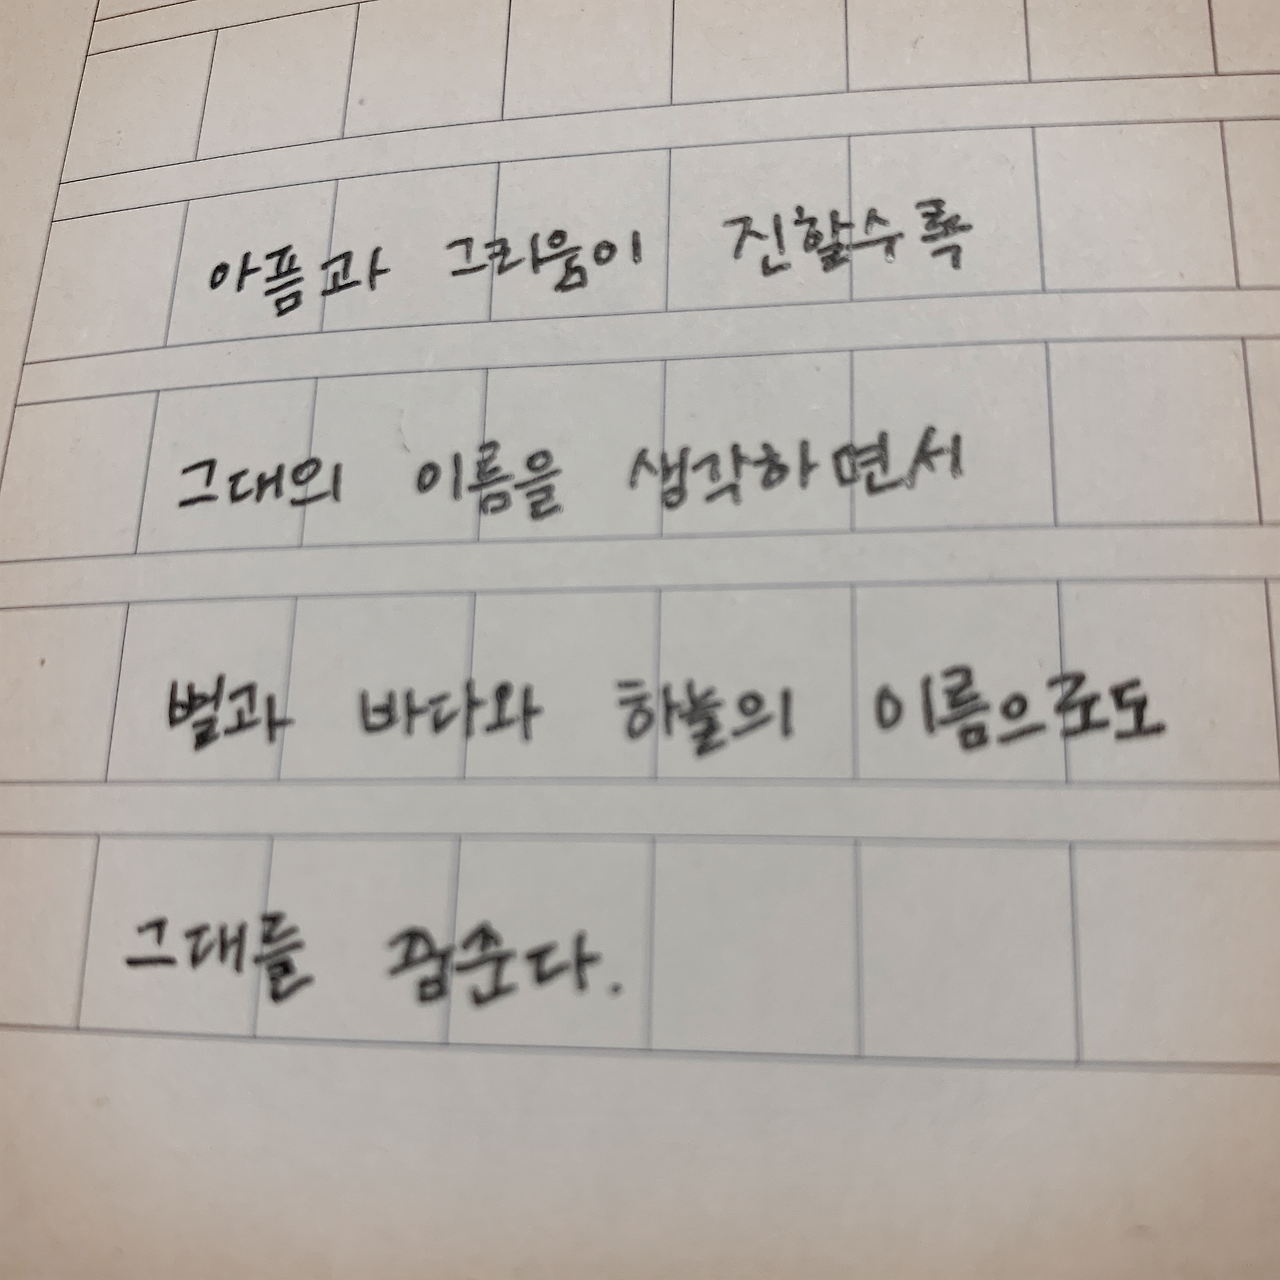 아픔과 그리움이 진할수록
그대의 이름을 생각하면서
별과 바다와 하늘의 이름으로도
그대를 꿈꾼다.